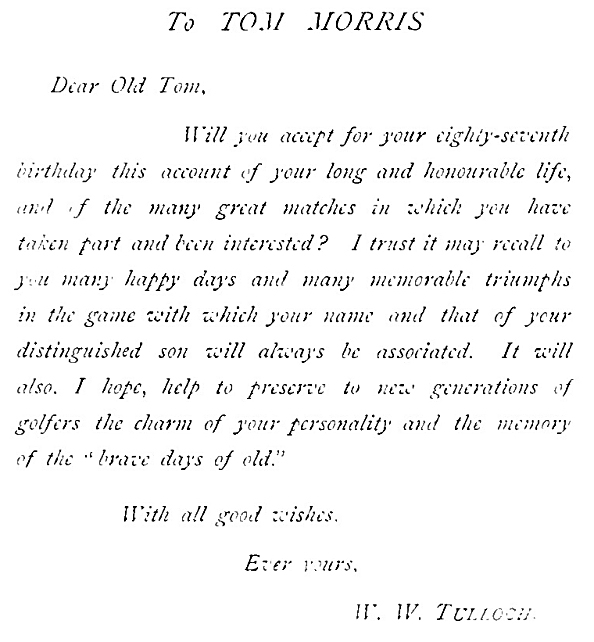 To TOM MORRIS
Dear Old Tom,
Will you accept for your eighty-seventh
birthday this account of your long and honourable life,
and of the many great matches in which you have
taken part and been interested? I trust it may recall to
you many happy days and many memorable triumphs
in the game with which your name and that of your
distinguished son will always be associated. It will
also, I hope, help to preserve to new generations of
golfers the charm of your personality and the memory
of the "brave days of old."
With all good wishes,
Ever yours,
W. W. TULLOCH.